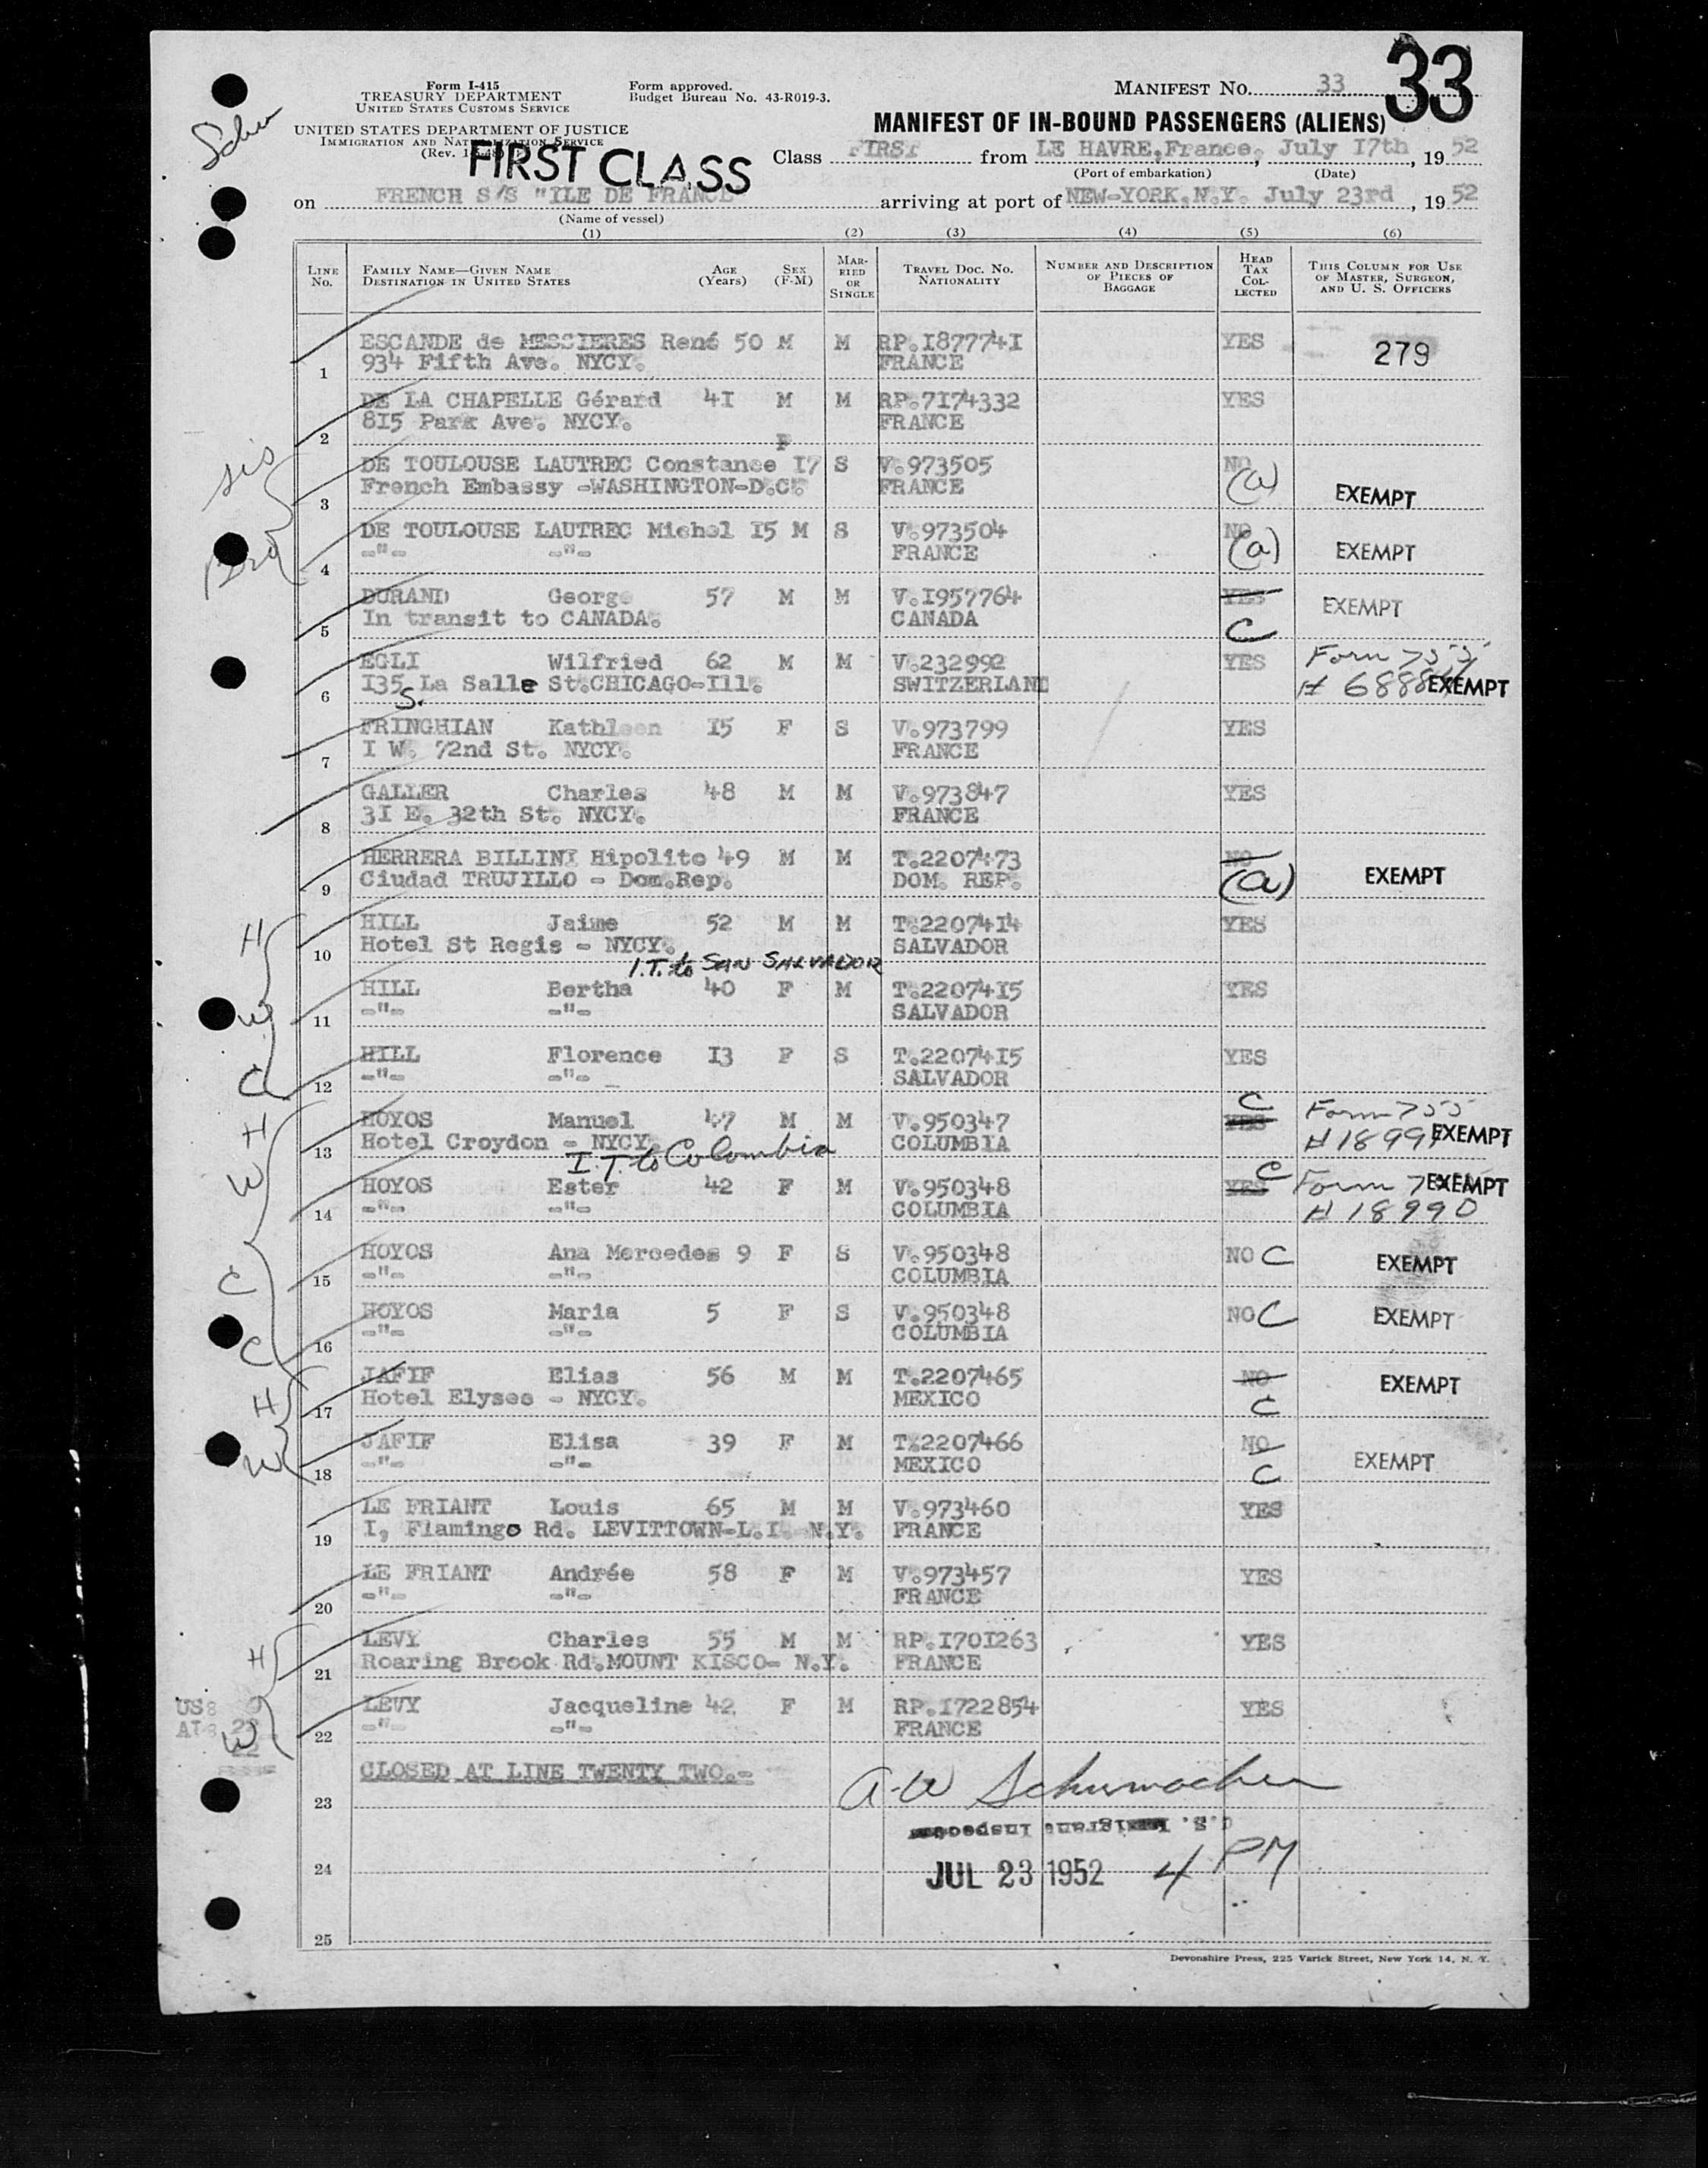 33
Form I-415
TREASURY DEPARTMENT
UNITED STATES CUSTOMS SERVICE
Form approved.
Budget Bureau No. 43-R019-3.
MANIFEST NO. 33
UNITED STATES DEPARTMENT OF JUSTICE
IMMIGRATION AND NATURALIZATION SERVICE
MANIFEST OF IN-BOUND PASSENGERS (ALIENS)
FIRST CLASS
Class FIRST from LE HAVRE, France, July 17th, 19 52
(Port of embarkation) (Date)
on FRENCH S/S "ILE DE FRANCE" arriving at port of NEW-YORK, N.Y. July 23rd, 19 52
(Name of vessel)
(1) (2) (3) (4) (5) (6)
LINE No. FAMILY NAME—GIVEN NAME DESTINATION IN UNITED STATES AGE (Years) SEX (F-M) MARRIED OR SINGLE TRAVEL DOC. NO. NATIONALITY NUMBER AND DESCRIPTION OF PIECES OF BAGGAGE HEAD TAX COLLECTED THIS COLUMN FOR USE OF MASTER, SURGEON, AND U. S. OFFICERS
ESCANDE de MESSIERES René 50 M M RP.I87774I YES 279
1 934 Fifth Ave. NYCY. FRANCE
DE LA CHAPELLE Gérard 4I M M RP.7I74332 YES
2 8I5 Park Ave. NYCY. FRANCE
F
DE TOULOUSE LAUTREC Constance I7 S V.973505 NO
3 French Embassy -WASHINGTON-D.C. FRANCE (a) EXEMPT
DE TOULOUSE LAUTREC Michel I5 M S V.973504 NO
4 -"- -"- FRANCE (a) EXEMPT
DURAND George 57 M M V.I957764 YES EXEMPT
5 In transit to CANADA. CANADA C
EGLI Wilfried 62 M M V.232992 YES Form 755
6 I35 S. La Salle St.CHICAGO-Ill. SWITZERLAND EXEMPT
FRINGHIAN Kathleen I5 F S V.973799 YES
7 I W. 72nd St. NYCY. FRANCE
GALLER Charles 48 M M V.973847 YES
8 3I E. 32th St. NYCY. FRANCE
HERRERA BILLINI Hipolito 49 M M T.2207473 NO
9 Ciudad TRUJILLO - Dom.Rep. DOM. REP. (a) EXEMPT
HILL Jaime 52 M M T.22074I4 YES
10 Hotel St Regis - NYCY. SALVADOR
I.T. to SAN SALVADOR
HILL Bertha 40 F M T.22074I5 YES
11 -"- -"- SALVADOR
HILL Florence I3 F S T.22074I5 YES
12 -"- -"- SALVADOR
HOYOS Manuel 47 M M V.950347 YES C Form 755
13 Hotel Croydon - NYCY. COLUMBIA EXEMPT
I.T. to Colombia
HOYOS Ester 42 F M V.950348 YES C Form EXEMPT
14 -"- -"- COLUMBIA # 18990
HOYOS Ana Mercedes 9 F S V.950348 NO C EXEMPT
15 -"- -"- COLUMBIA
HOYOS Maria 5 F S V.950348 NO C EXEMPT
16 -"- -"- COLUMBIA
JAFIF Elias 56 M M T.2207465 NO EXEMPT
17 Hotel Elysee - NYCY. MEXICO C
JAFIF Elisa 39 F M T.2207466 NO EXEMPT
18 -"- -"- MEXICO C
LE FRIANT Louis 65 M M V.973460 YES
19 I, Flamingo Rd. LEVITTOWN-L.I. N.Y. FRANCE
LE FRIANT Andrée 58 F M V.973457 YES
20 -"- -"- FRANCE
LEVY Charles 55 M M RP.I70I263 YES
21 Roaring Brook Rd.MOUNT KISCO- N.Y. FRANCE
LEVY Jacqueline 42 F M RP.I722854 YES
22 -"- -"- FRANCE
CLOSED AT LINE TWENTY TWO.-
A-W Schumacher
23
U.S. Immigrant Inspector
24 JUL 23 1952 4 PM
25
Devonshire Press, 225 Varick Street, New York 14, N. Y.